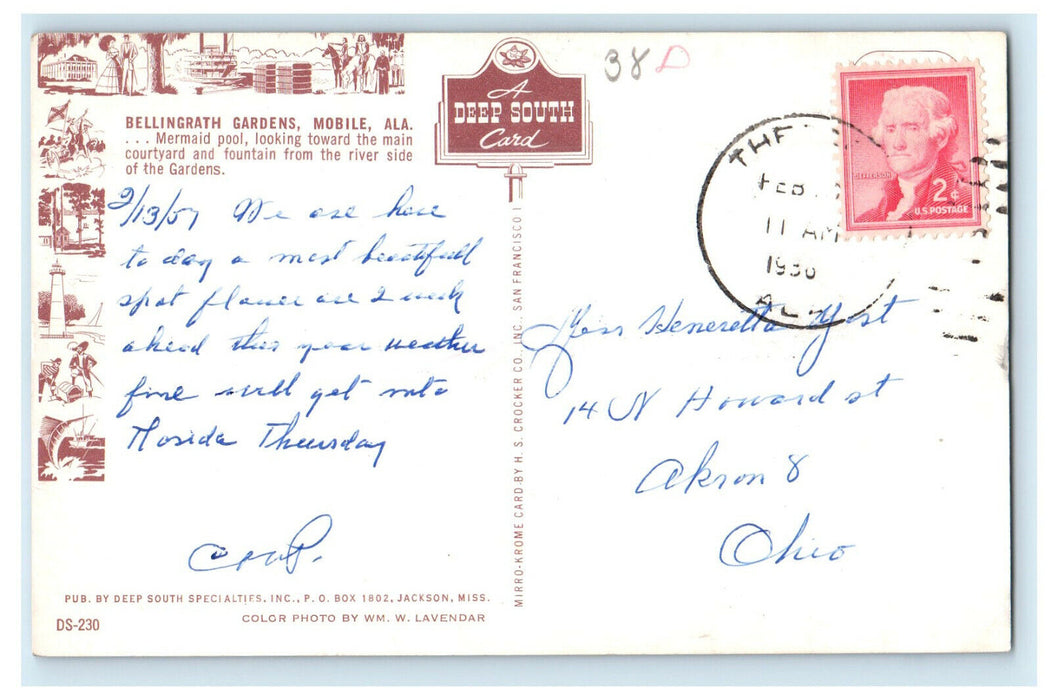 38 D
BELLINGRATH GARDENS, MOBILE, ALA.
. . . Mermaid pool, looking toward the main
courtyard and fountain from the river side
of the Gardens.
A
DEEP SOUTH
Card
THE
FEB
11 AM
1956
ALA
JEFFERSON
2¢
U.S. POSTAGE
2/13/57 We are here
to day a most beautifull
spot flower are 2 week
ahead this year weather
fine will get into
Florida Thuersday
PUB. BY DEEP SOUTH SPECIALTIES, INC., P. O. BOX 1802, JACKSON, MISS.
DS-230
COLOR PHOTO BY WM. W. LAVENDAR
MIRRO-KROME CARD BY H. S. CROCKER CO. INC., SAN FRANCISCO 1
Miss Heneretta Yost
14 N Howard st
Akron 8
Ohio